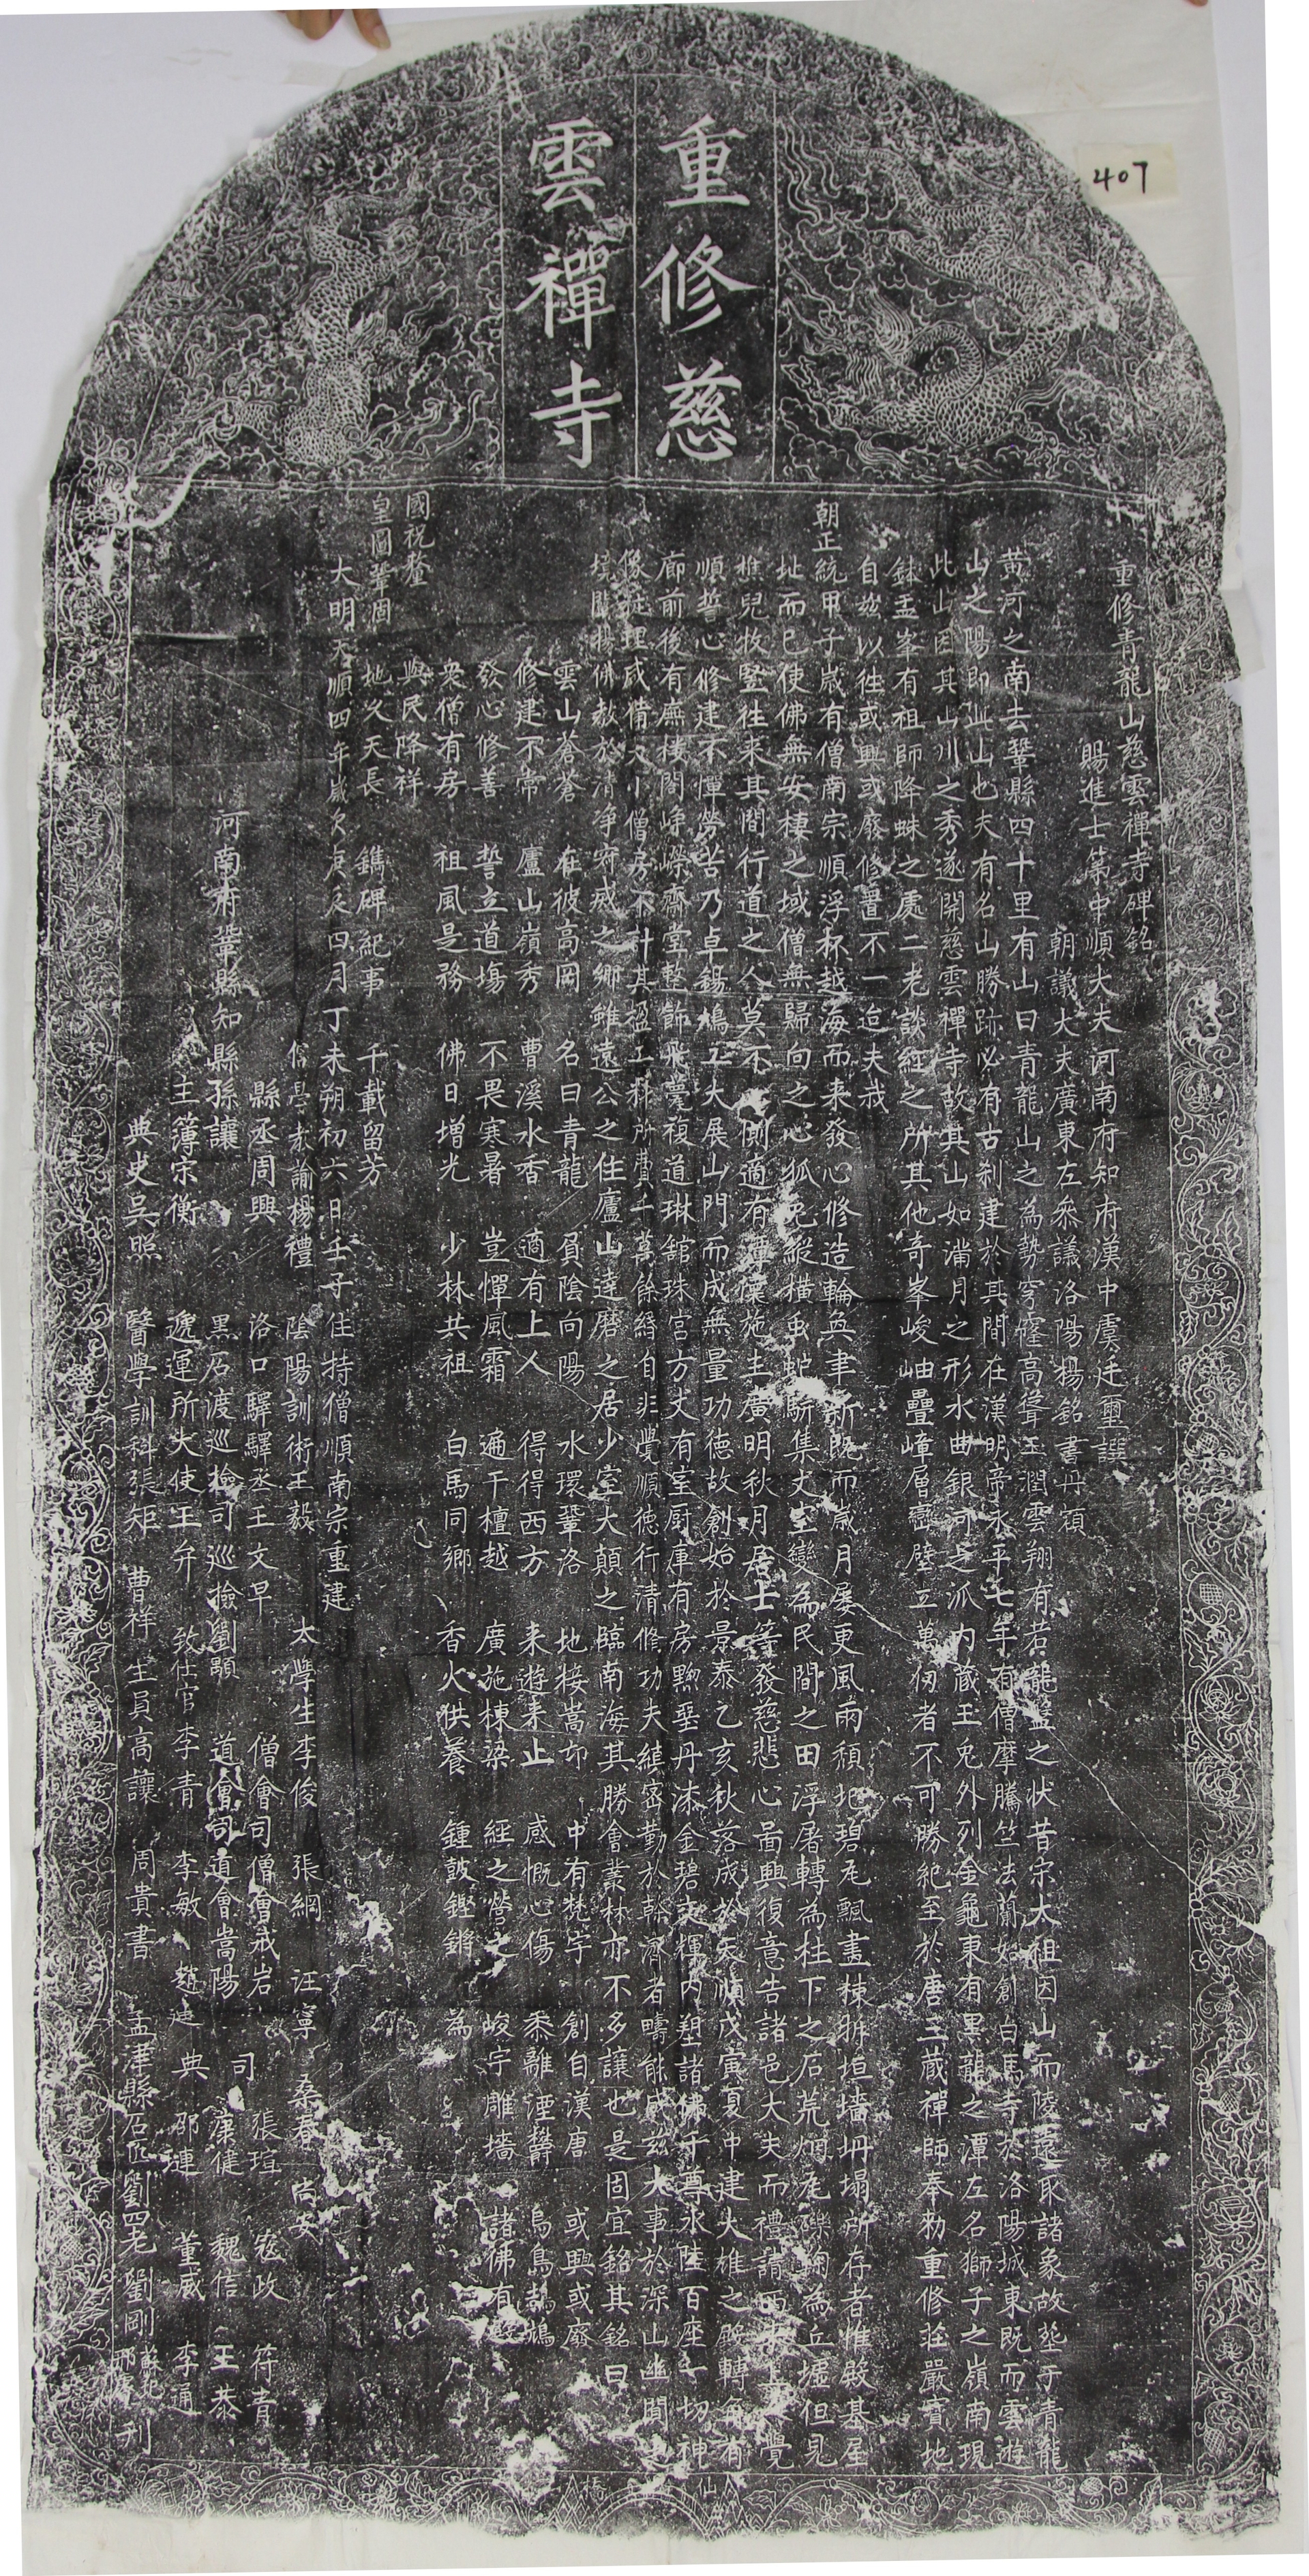 407
重修慈
雲禪寺
重修青龍山慈雲禪寺碑銘
賜進士第中順大夫河南府知府漢中虞廷璽譔
朝議大夫廣東左叅議洛陽楊銘書丹
黃河之南去鞏縣四十里有山曰青龍山之為勢穹窿高聳玉潤雲翔有若龍蓋之狀昔宋太祖因山而陵寢取諸象故塋于青龍
山之陽即此山也夫有名山勝跡必有古剎建於其間在漢明帝永平七年有僧摩騰竺法蘭始創白馬寺於洛陽城東既而雲遊
此山因其山川之秀遂開慈雲禪寺故其山如滿月之形水曲銀河之派內藏玉兔外列金龜東有黑龍之潭左名獅子之嶺南現
鉢盂峯有祖師降蛛之處二老談經之所其他奇峯峻岫疊嶂層巒壁立萬仞者不可勝紀至於唐三藏禪師奉勑重修莊嚴寶地
自茲以往或興或廢修置不一迨夫我
朝正統甲子歲有僧南宗順浮杯越海而来發心修造輪奐聿新既而歲月屢更風雨頹圮碧瓦飄盡棟拆垣墻坍塌所存者惟殿基屋
址而已使佛無安棲之域僧無歸向之心狐兔縱橫虫蛇駢集丈室變為民間之田浮屠轉為柱下之石荒烟瓦礫鞠為丘墟但見
樵兒牧豎往来其間行道之人莫不 惻適有 施主廣明秋月居士等發慈悲心啚興復意告諸邑大夫而禮請 覺
順誓心修建不憚勞苦乃卓錫鳩工大展山門而成無量功德故創始於景泰乙亥秋落成於天順戊寅夏中建大雄之殿轉角有
廊前後有廡樓閣崢嶸齋堂整飾飛甍複道琳舘珠宮方丈有室厨庫有房黝堊丹漆金碧交輝內塑諸佛千尊水陸百座一切神
像莊理咸備又小僧房不計其盈工料所費千萬餘緡自非覺順德行清修功夫縝密勤於幹濟者疇能成茲大事於深山幽閴之
境闡揚佛教於清净寂滅之鄉雖遠公之住廬山達磨之居少室大顛之臨南海其勝會叢林亦不多讓也是固宜銘其銘曰
雲山蒼蒼 在彼高岡 名曰青龍 負陰向陽 水環鞏洛 地接嵩邙 中有梵宇 創自漢唐 或興或廢
修建不常 廬山嶺秀 曹溪水香 適有上人 得得西方 来遊来止 感慨心傷 黍離湮鬱 鳥鳥鵲鵲
發心修善 誓立道場 不畏寒暑 豈憚風霜 遍干檀越 廣施棟梁 經之營之 峻宇雕墻 諸佛有
衆僧有房 祖風是務 佛日增光 少林共祖 白馬同鄉 香火供養 鍾鼓鏗鏘 為
國祝釐 與民降祥
皇圖鞏固 地久天長 鐫碑紀事 千載留芳
大明天順四年歲次庚辰四月丁未朔初六日壬子住持僧順南宗重建
儒學教諭楊禮 陰陽訓術王毅 太學生李俊 張網 汪寧 桑春 尚安
縣丞周興 洛口驛驛丞王文早 僧會司僧會戒岩 司 張瑄 寇政 符青
河南府鞏縣知縣孫讓 黑石渡巡檢司巡檢劉顯 道會司道會嵩陽 康健 魏信 王泰
主簿宋衡 遞運所大使王弁 致仕官李青 李敏 趙進 典 邵連 董威 李通
典史吳照 醫學訓科張矩 曹祥 生員高讓 周貴書 孟津縣石匠劉四老 劉剛 刊
仙